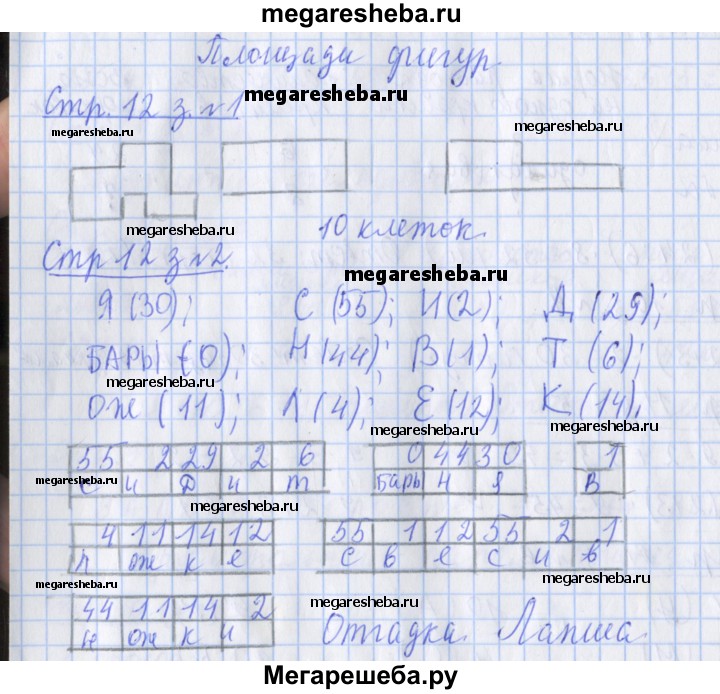 megaresheba.ru
Площади фигур
Стр. 12 з. №1 megaresheba.ru
megaresheba.ru megaresheba.ru
megaresheba.ru
10 клеток.
Стр 12 з №2.
megaresheba.ru
Я (30); С (55); И (2); Д (29);
БАРЫ (0); Н (44); В (1); Т (6);
megaresheba.ru megaresheba.ru
ОЖ (11); Л (4); Е (12); К (14).
55 2 29 2 6 0 44 30 1
megaresheba.ru megaresheba.ru
с и д и т Бары н я В
megaresheba.ru
4 11 14 12 55 1 12 55 2 1
л ож к е с в е с и в
megaresheba.ru megaresheba.ru
44 11 14 2 megaresheba.ru
н ож к и Отгадка. Лапша.
Мегарешеба.ру